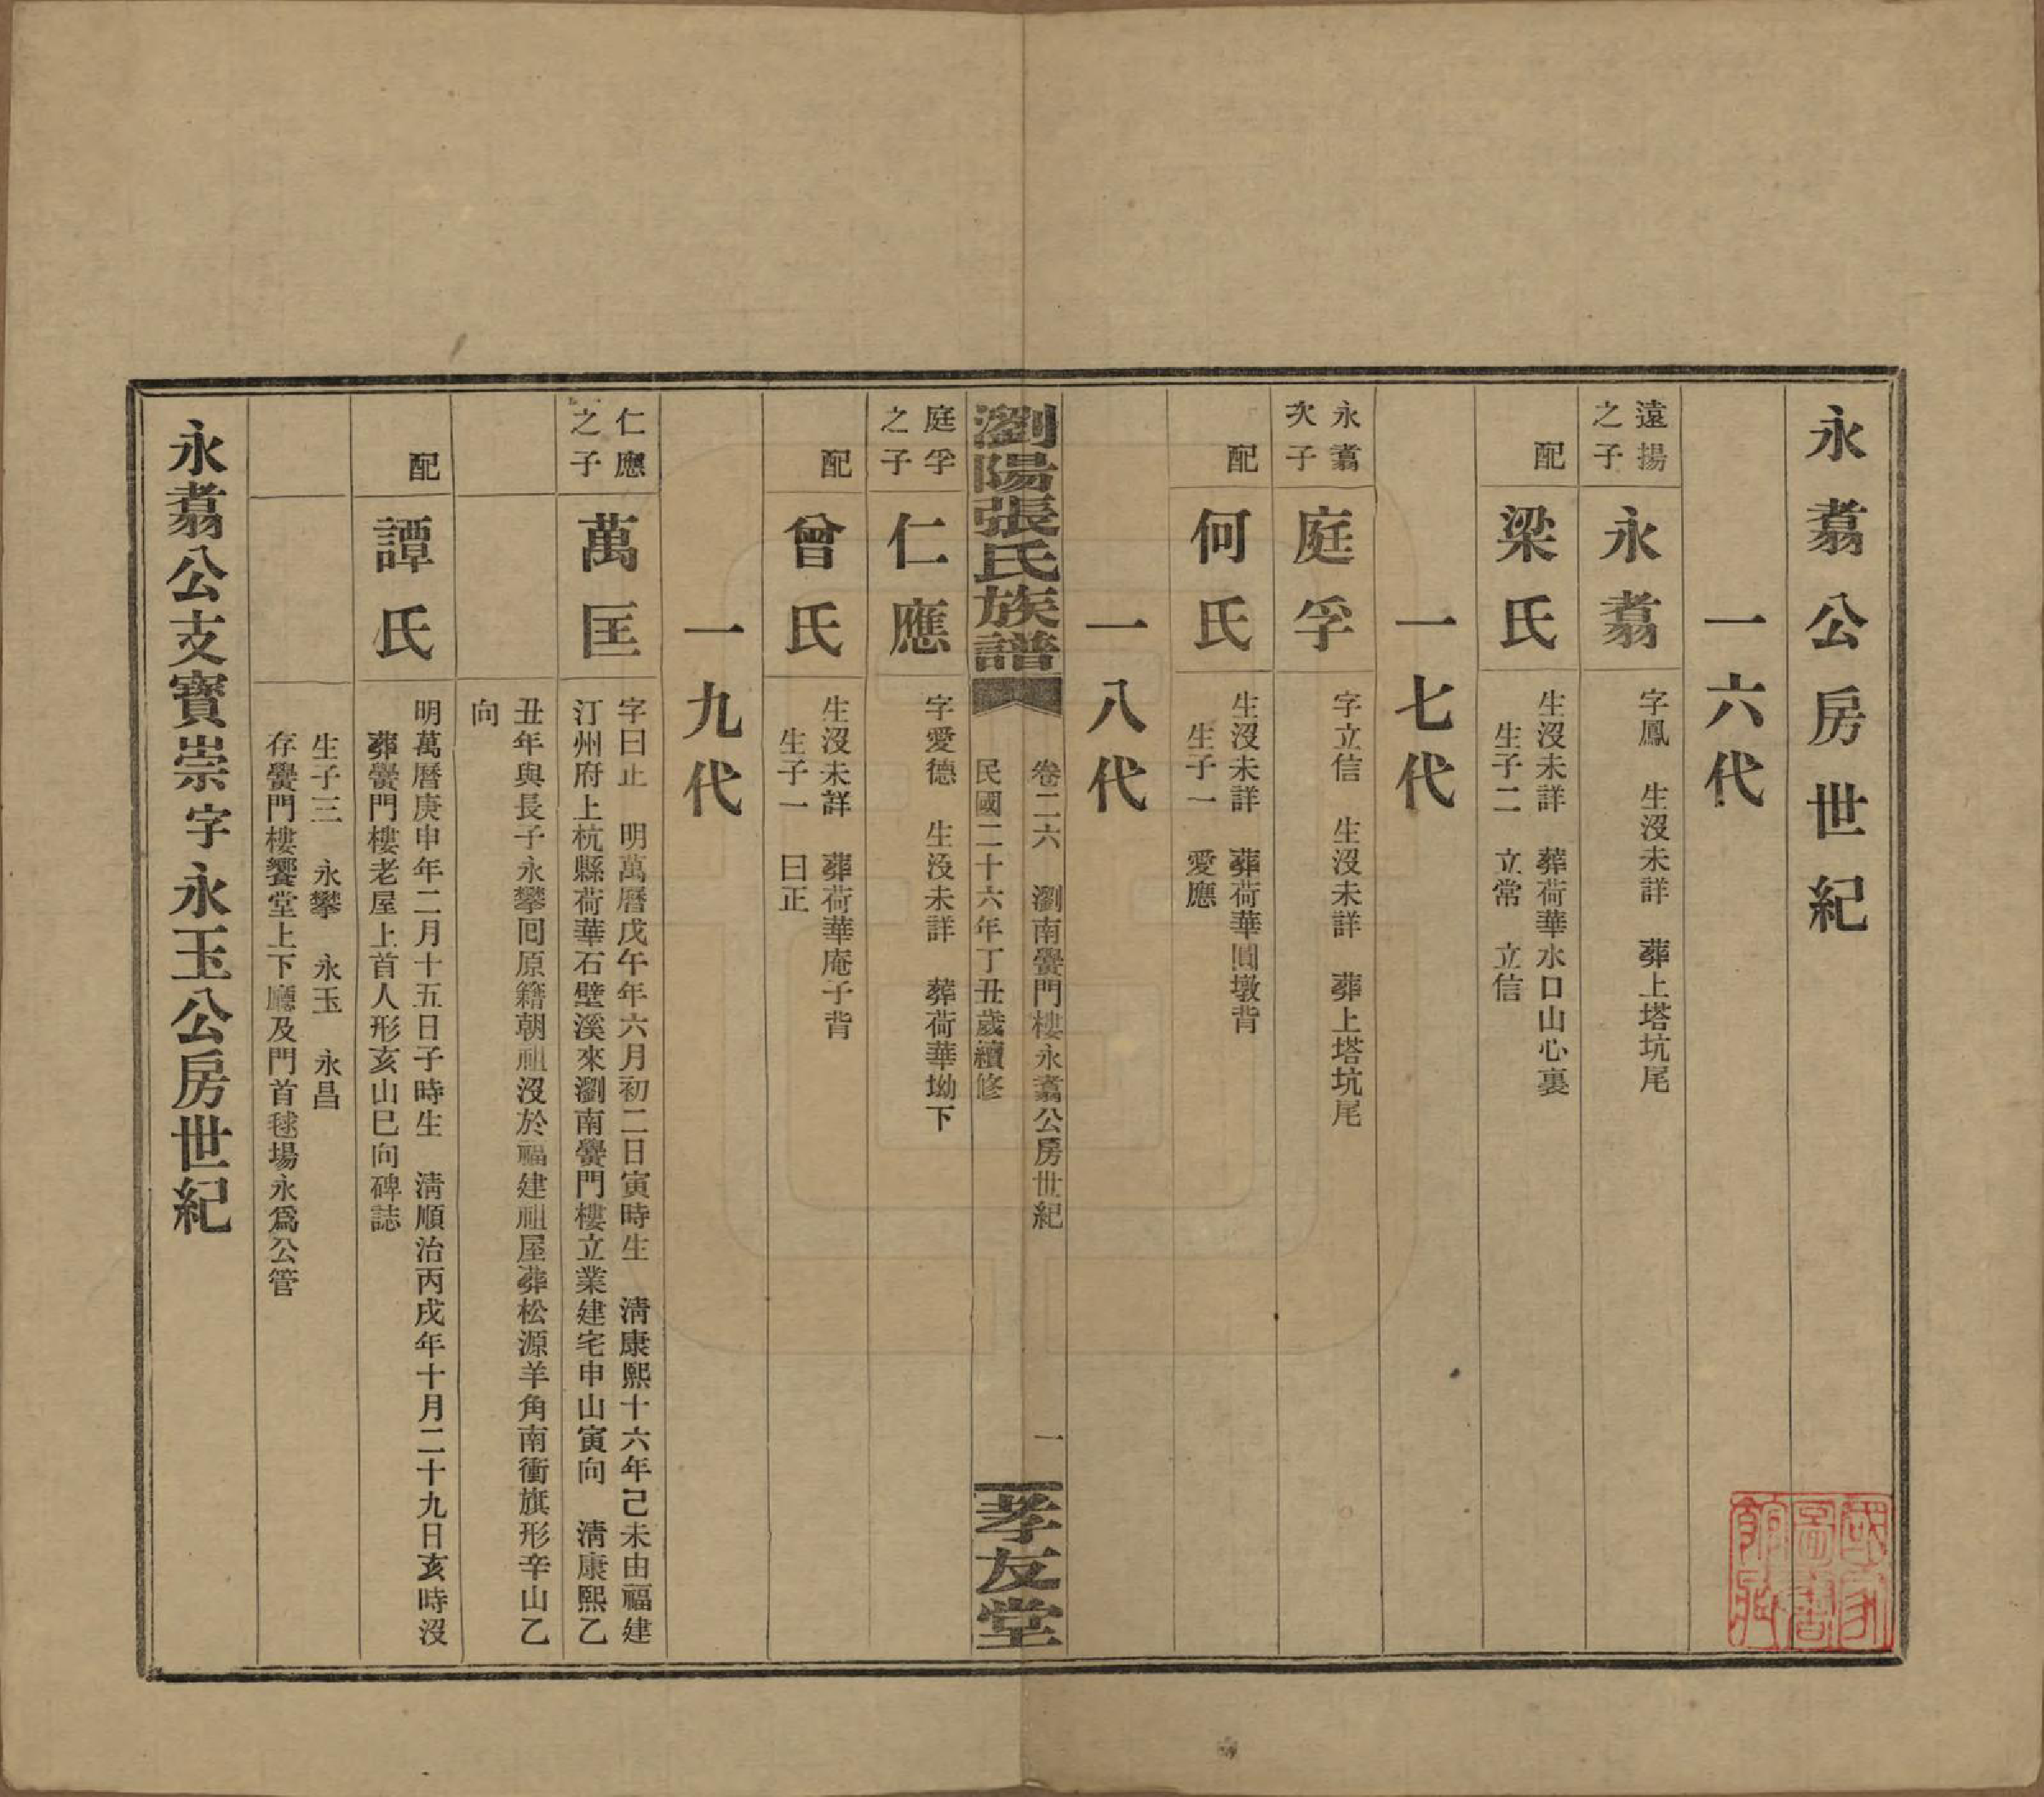 永翥公房世紀
一六代
遠揚之子
永翥
字鳳　生沒未詳　葬上塔坑尾
配
梁氏
生沒未詳　葬荷華水口山心裏
生子二　立常　立信
一七代
永翥次子
庭孚
字立信　生沒未詳　葬上塔坑尾
配
何氏
生沒未詳　葬荷華圓墩背
生子一　愛應
一八代
瀏陽張氏族譜
卷二六　瀏南釁門樓永翥公房世紀
一
民國二十六年丁丑歲續修
孝友堂
庭孚之子
仁應
字愛德　生沒未詳　葬荷華坳下
配
曾氏
生沒未詳　葬荷華庵子背
生子一　曰正
一九代
仁應之子
萬匡
字曰止　明萬曆戊午年六月初二日寅時生　淸康熙十六年己未由福建
汀州府上杭縣荷華石壁溪來瀏南釁門樓立業建宅申山寅向　淸康熙乙
丑年與長子永攀回原籍朝祖沒於福建祖屋葬松源羊角南衝旗形辛山乙
向
配
譚氏
明萬曆庚申年二月十五日子時生　淸順治丙戌年十月二十九日亥時沒
葬釁門樓老屋上首人形亥山巳向碑誌
生子三　永攀　永玉　永昌
存釁門樓饗堂上下廳及門首毬場永爲公管
永翥公支寶崇字永玉公房世紀
國家圖書館藏